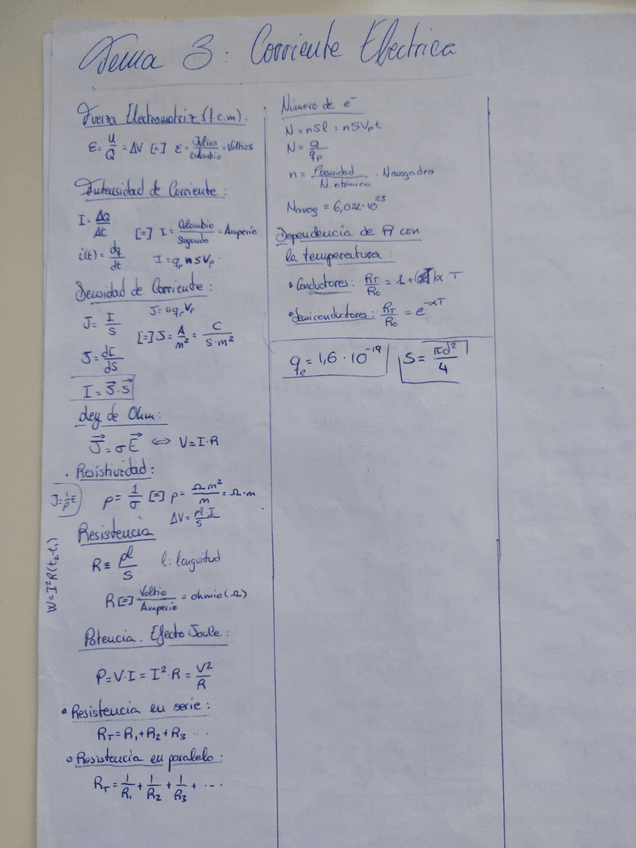 Tema 3: Corriente Electrica
Fuerza Electromotriz (f.e.m):
ε = U/Q = ΔV [=] ε = Julios/culombio = Voltios
Intensidad de Corriente:
I = ΔQ/Δt [=] I = Culombio/Segundo = Amperio
i(t) = dq/dt I = qₚ n S Vₚ
Densidad de Corriente:
J = I/S J = nqₚVₚ
[=] J = A/m² = C/s·m²
J = dI/dS
I = J⃗·S⃗
Ley de Ohm:
J⃗ = σE⃗ ⇔ V = I·R
· Resistividad:
J = 1/ρ E
ρ = 1/σ [=] ρ = Ω m²/m = Ω·m
ΔV = ρl I/S
Resistencia
R = ρl/S l: longuitud
R [=] Voltio/Amperio = ohmio (Ω)
W = I²R(t₂-t₁)
Potencia. Efecto Joule:
P = V·I = I²·R = V²/R
• Resistencia en serie:
R_T = R₁ + R₂ + R₃ ...
• Resistencia en paralelo:
R_T = 1/R₁ + 1/R₂ + 1/R₃ + ...
Número de e⁻
N = nSl = nSVₚt
N = Q/qₚ
n = /N. atómico · Navogadro
Navog = 6,022·10²³
Dependencia de R con
la temperatura:
• Conductores: R_T/R₀ = 1 + α T
• Semiconductores: R_T/R₀ = e^-αT
qₑ = 1,6·10⁻¹⁹
S = πd²/4